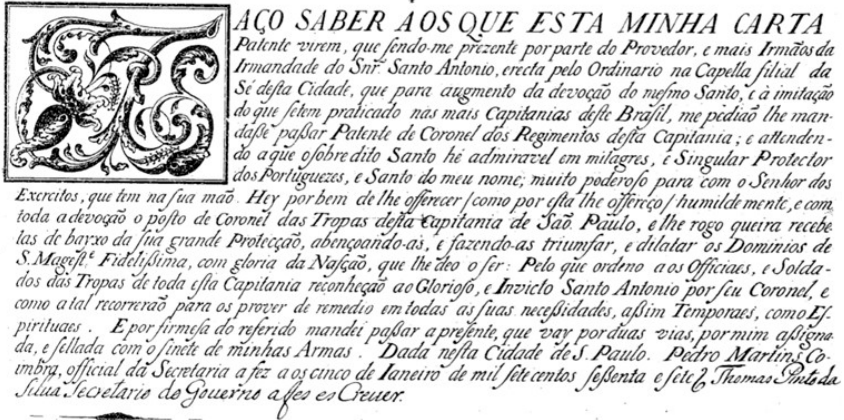 FAÇO SABER AOS QUE ESTA MINHA CARTA
Patente virem, que sendo-me prezente por parte do Provedor, e mais Irmãos da
Irmandade do Snr. Santo Antonio, erecta pelo Ordinario na Capella filial da
Sé desta Cidade, que para augmento da devoção do mesmo Santo, e à imitação
do que setem praticado nas mais Capitanias deste Brasil, me pedião lhe man-
dasse passar Patente de Coronel dos Regimentos desta Capitania; e attenden-
do a que o sobre dito Santo hé admiravel em milagres, e Singular Protector
dos Portuguezes, e Santo do meu nome, muito poderoso para com o Senhor dos
Exercitos, que tem na sua mão. Hey por bem de lhe offerecer /como por esta lhe offereço/ humildemente, e com
toda a devoção o posto de Coronel das Tropas desta Capitania de São Paulo, e lhe rogo queira recebe-
las de bayxo da sua grande Protecção, abençoando-as, e fazendo-as triumfar, e dilatar os Dominios de
S. Magest.e Fidelissima, com gloria da Nasção, que lhe deo o ser: Pelo que ordeno aos Officiaes, e Solda-
dos das Tropas de toda esta Capitania reconheção ao Glorioso, e Invicto Santo Antonio por seu Coronel, e
como a tal recorrerão para os prover de remedio em todas as suas necessidades, assim Temporaes, como Es-
pirituaes. E por firmesa do referido mandei passar a presente, que vay por duas vias, por mim assigna-
da, e sellada com o sinete de minhas Armas. Dada nesta Cidade de S. Paulo. Pedro Martins Co-
imbra, official da Secretaria a fez aos cinco de Ianeiro de mil sete centos sessenta e sete/ Thomas Pinto da
Silva Secretario do Governo a fes escrever.